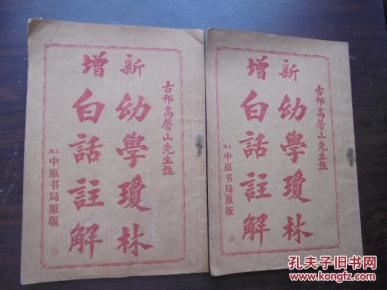 古邗高馨山先生註
新增
幼學瓊林
白話註解
上海中原书局原版
古邗高馨山先生註
新增
幼學瓊林
白話註解
上海中原书局原版
孔夫子旧书网